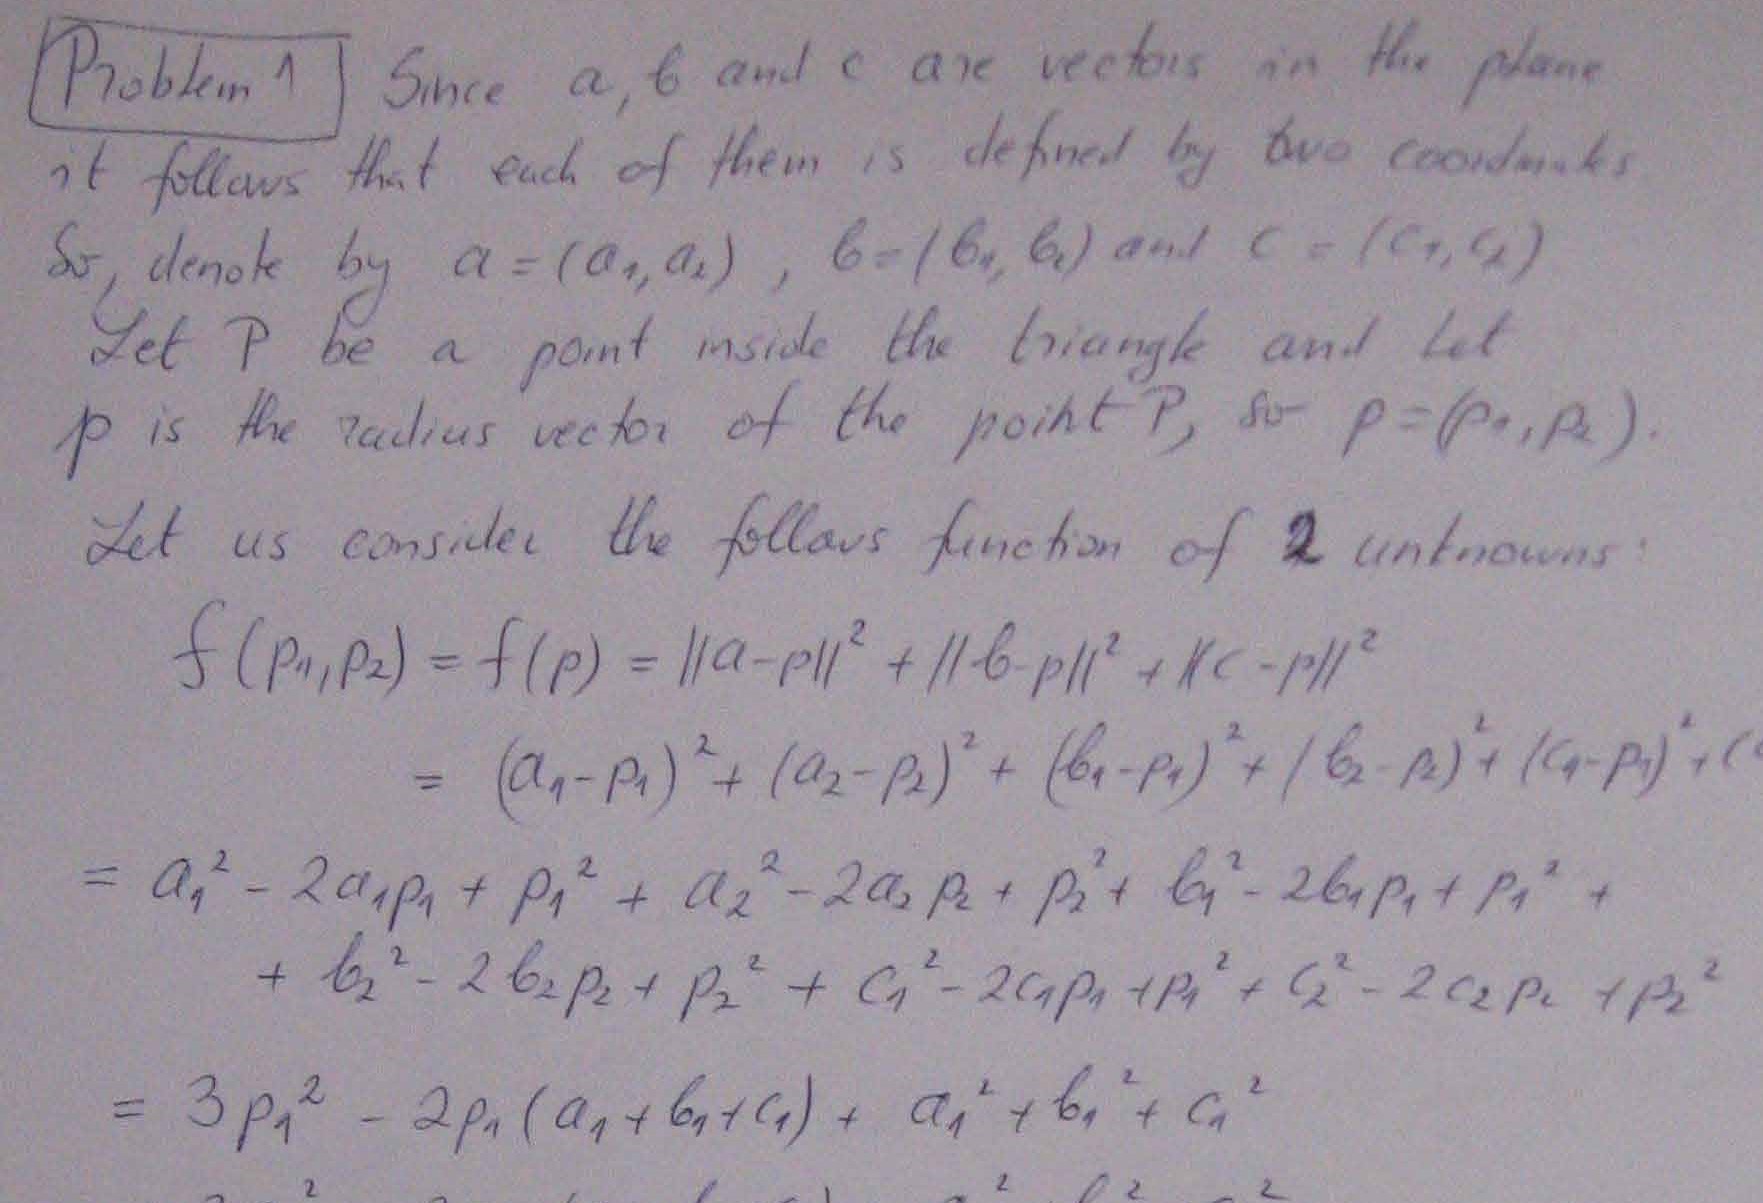 Problem 1 Since a, b and c are vectors in the plane
it follows that each of them is defined by two coordinates.
So, denote by a = (a₁, a₂) , b = (b₁, b₂) and c = (c₁, c₂)
Let P be a point inside the triangle and let
p is the radius vector of the point P, so p = (p₁, p₂).
Let us consider the follows function of 2 unknowns:
f(p₁, p₂) = f(p) = ||a-p||² + ||b-p||² + ||c-p||²
= (a₁-p₁)² + (a₂-p₂)² + (b₁-p₁)² + (b₂-p₂)² + (c₁-p₁)² + (
= a₁² - 2a₁p₁ + p₁² + a₂² - 2a₂p₂ + p₂² + b₁² - 2b₁p₁ + p₁² +
+ b₂² - 2b₂p₂ + p₂² + c₁² - 2c₁p₁ + p₁² + c₂² - 2c₂p₂ + p₂²
= 3p₁² - 2p₁(a₁+b₁+c₁) + a₁² + b₁² + c₁²